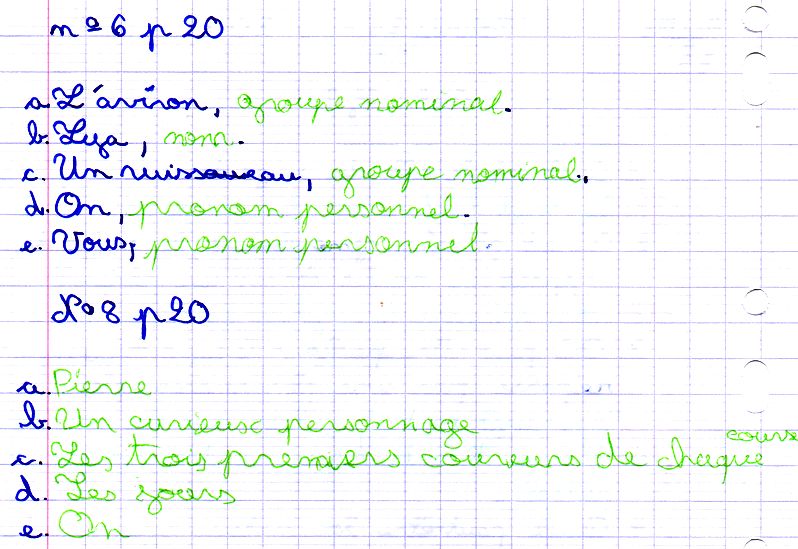 nº 6 p 20
a. L'aviron, groupe nominal.
b. Lya, nom.
c. Un ruisseau, groupe nominal.
d. On, pronom personnel.
e. Vous, pronom personnel.
Nº 8 p 20
a. Pierre
b. Un curieux personnage
c. Les trois premiers coureurs de chaque course
d. Les jours
e. On